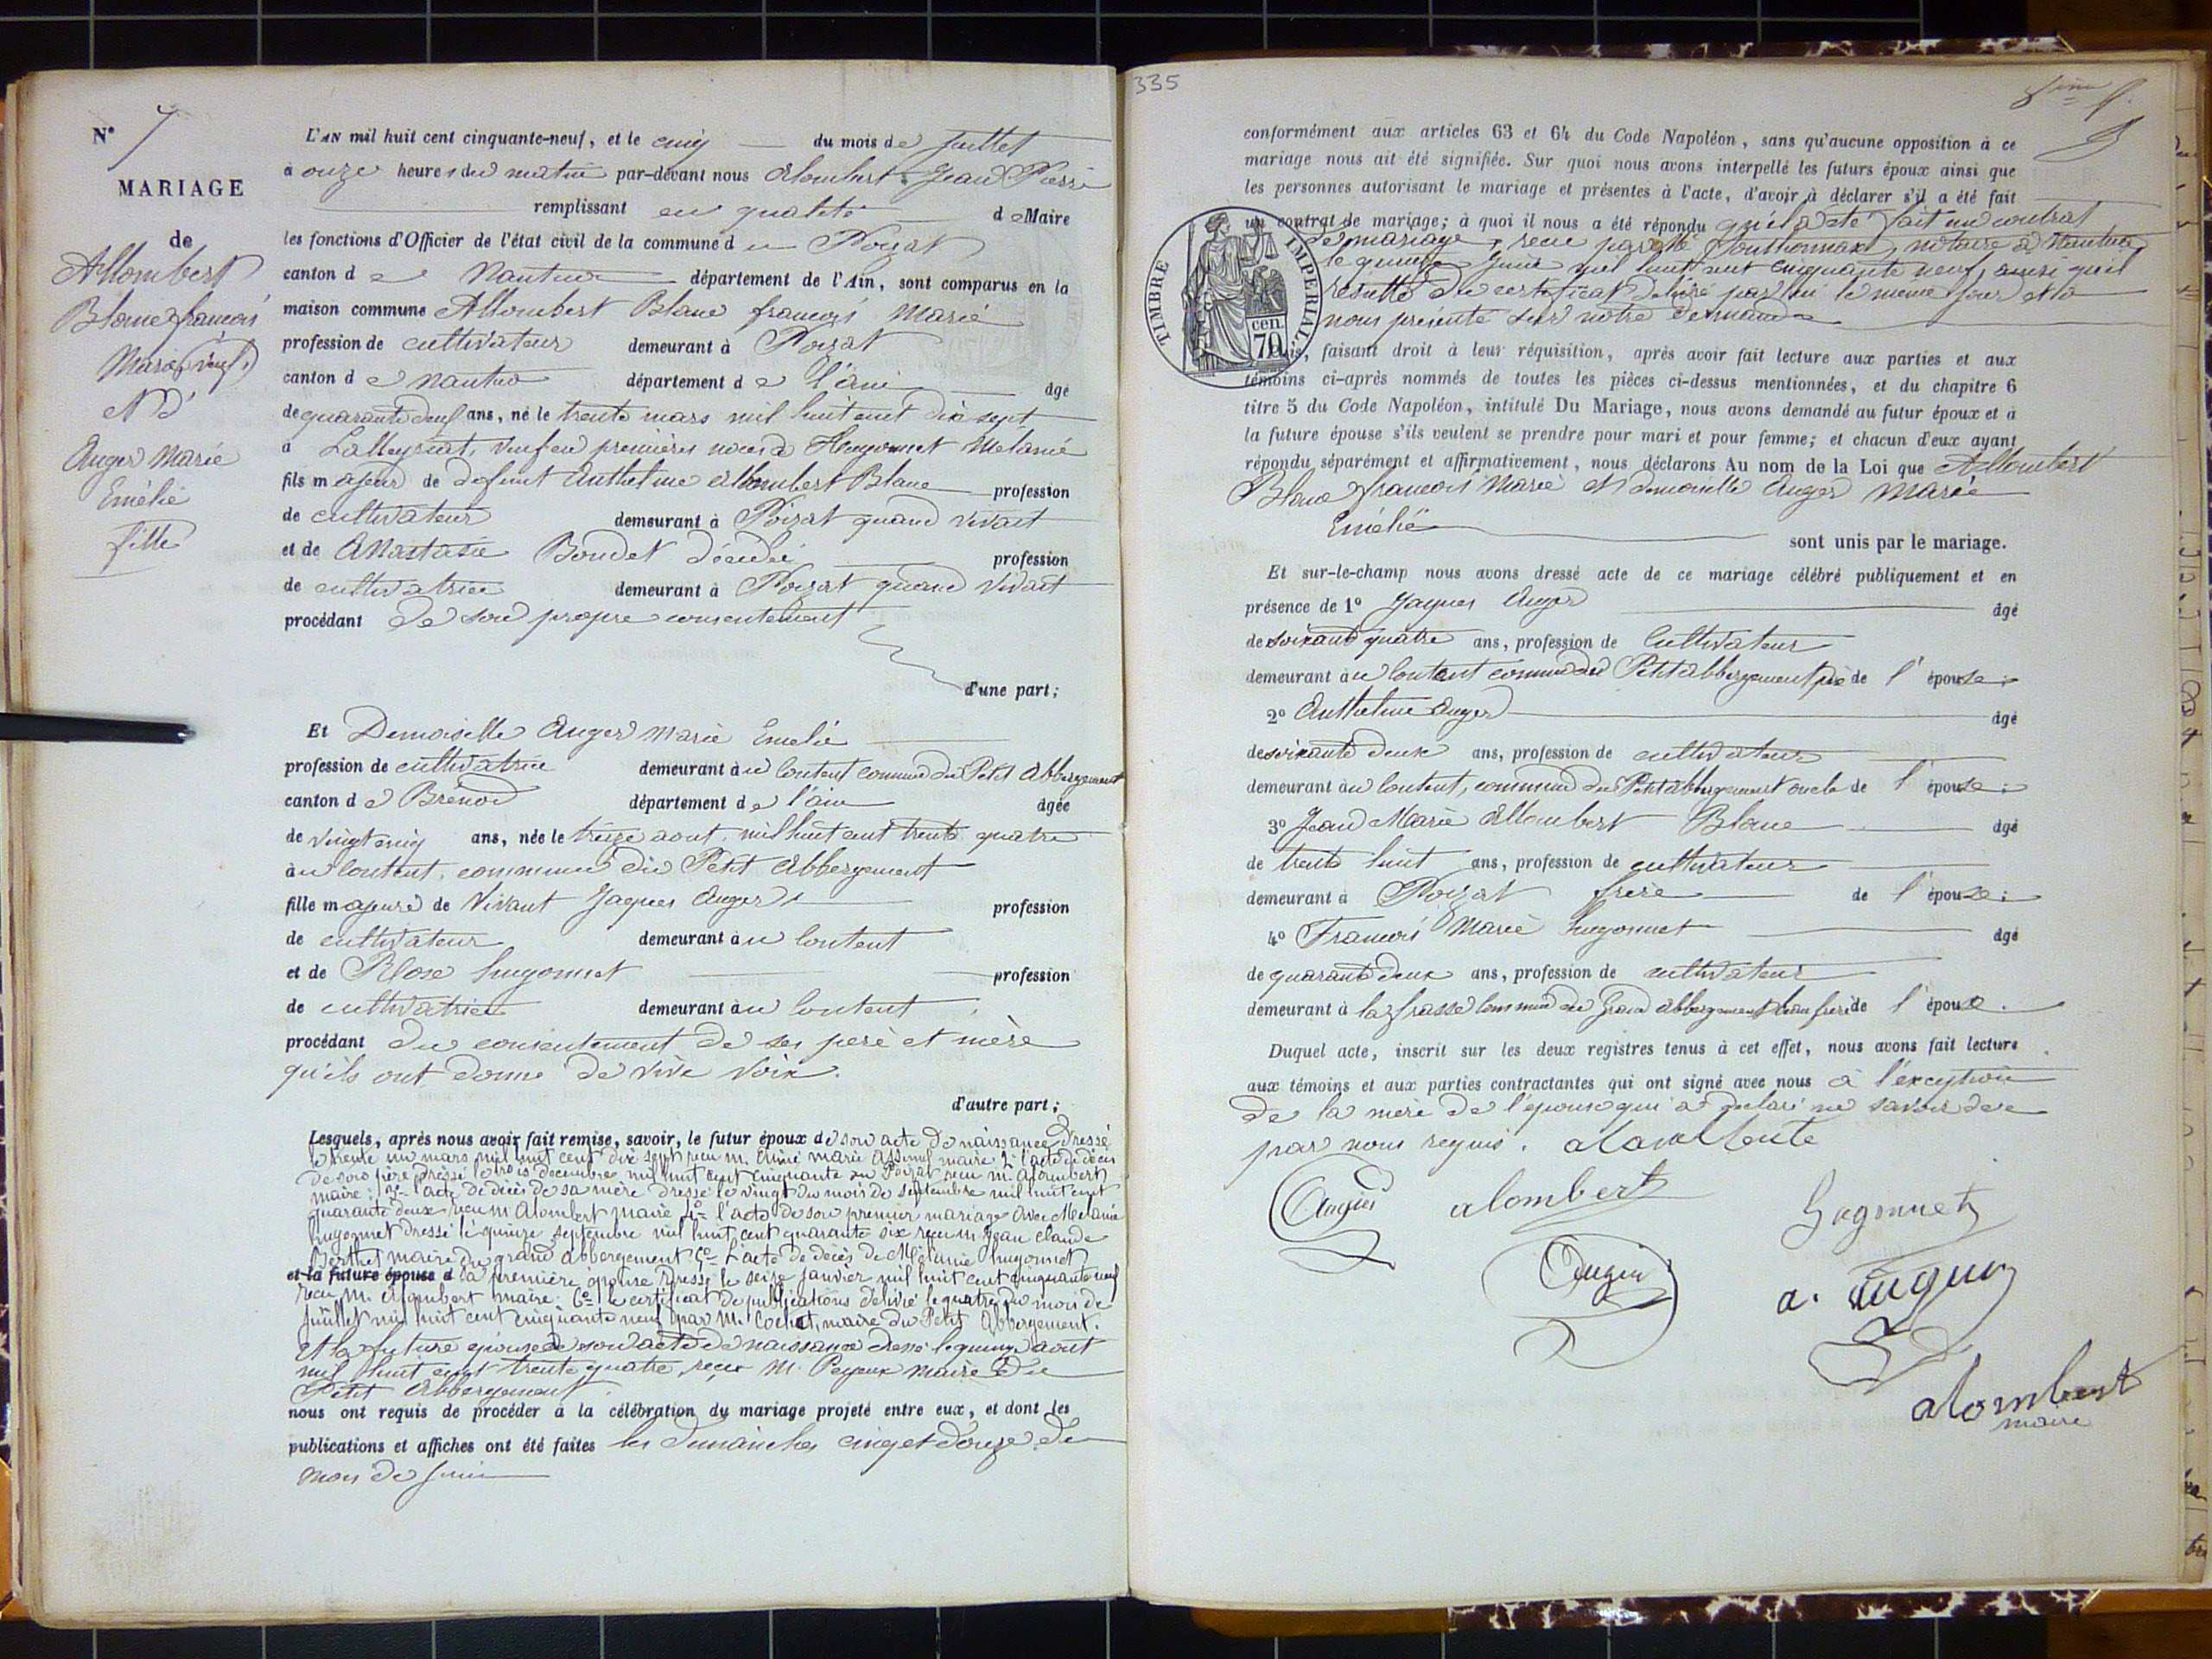 N° 7
MARIAGE
de
Allombert
Blanc françois
Marie (veuf)
Et d'
Auger Marie
Emélie
fille
L'AN mil huit cent cinquante-neuf, et le cinq du mois de Juillet
à onze heures du matin par-devant nous Alombert Jean Pierre
remplissant en qualité de Maire
les fonctions d'Officier de l'état civil de la commune du Poizat
canton de Nantua département de l'Ain, sont comparus en la
maison commune Allombert Blanc françois Marie
profession de cultivateur demeurant à Poizat
canton de Nantua département de l'ain âgé
de quarante deux ans, né le trente mars mil huit cent dix sept
à Lalleyriat, veuf en premières noces de Hugonnet Mélanie
fils majeur de defunt Anthelme Allombert Blanc profession
de cultivateur demeurant à Poizat quand vivait
et de Anastasie Boudet décédée profession
de cultivatrice demeurant à Poizat quand vivait
procédant de son propre consentement
d'une part;
Et Demoiselle Auger Marie Emelie
profession de cultivatrice demeurant au Coutent commune du Petit Abbergement
canton de Brénod département de l'ain âgée
de vingt cinq ans, née le treize aout mil huit cent trente quatre
au Coutent, commune du Petit Abbergement
fille majeure de Vivant Jaques Auger profession
de cultivateur demeurant au Coutent
et de Rose hugonnet profession
de cultivatrice demeurant au Coutent
procédant du consentement de ses père et mère
qu'ils ont donné de vive voix.
d'autre part;
Lesquels, après nous avoir fait remise, savoir, le futur époux de son acte de naissance dressé
le trente un mars mil huit cent dix sept reçu m. Aimé marie maire 2° l'acte de décès
de son père dressé le trois decembre mil huit cent cinquante au Poizat reçu m. Alombert
maire; 3° l'acte de décès de sa mère dressé le vingt du mois de septembre mil huit cent
quarante deux reçu m Alombert maire 4° l'acte de son premier mariage avec Melanie
hugonnet dressé le quinze septembre mil huit cent quarante six reçu m. Jean Claude
Berthet maire du grand abbergement 5° L'acte de décès de Mélanie hugonnet
et la future épouse d sa première épouse dressé le seize janvier mil huit cent cinquante neuf
reçu m. Alombert maire; 6° le certificat de publications délivré le quatre du mois de
Juillet mil huit cent cinquante neuf par M. Cochet, maire du Petit Abbergement.
Et la future épouse de son acte de naissance dressé le quinze aout
mil huit cent trente quatre, reçu M. Peyeux maire du
Petit Abbergement.
nous ont requis de procéder à la célébration du mariage projeté entre eux, et dont les
publications et affiches ont été faites les dimanches cinq et douze du
mois de Juin
335
conformément aux articles 63 et 64 du Code Napoléon, sans qu'aucune opposition à ce
mariage nous ait été signifiée. Sur quoi nous avons interpellé les futurs époux ainsi que
les personnes autorisant le mariage et présentes à l'acte, d'avoir à déclarer s'il a été fait
un contrat de mariage; à quoi il nous a été répondu qu'il a été fait un contrat
de mariage, reçu par Me notaire à Nantua
le quinze Juin mil huit cent cinquante neuf, ainsi qu'il
résulte du certificat délivré par lui le même jour et à
nous présenté sur notre demande
TIMBRE IMPERIAL
70 cen.
faisant droit à leur réquisition, après avoir fait lecture aux parties et aux
témoins ci-après nommés de toutes les pièces ci-dessus mentionnées, et du chapitre 6
titre 5 du Code Napoléon, intitulé Du Mariage, nous avons demandé au futur époux et à
la future épouse s'ils veulent se prendre pour mari et pour femme; et chacun d'eux ayant
répondu séparément et affirmativement, nous déclarons Au nom de la Loi que Allombert
Blanc françois Marie et demoiselle Auger Marie
Emélie
sont unis par le mariage.
Et sur-le-champ nous avons dressé acte de ce mariage célébré publiquement et en
présence de 1° Jaques Auger âgé
de soixante quatre ans, profession de Cultivateur
demeurant au Coutent commune du Petit abbergement père de l'épouse;
2° Anthelme Auger âgé
de soixante deux ans, profession de cultivateur
demeurant au Coutent, commune du Petit abbergement oncle de l'épouse;
3° Jean Marie Allombert Blanc âgé
de trente huit ans, profession de cultivateur
demeurant à Poizat frère de l'épouse;
4° François Marie hugonnet âgé
de quarante deux ans, profession de cultivateur
demeurant à la frasse commune du Grand abbergement beau frère de l'épouse.
Duquel acte, inscrit sur les deux registres tenus à cet effet, nous avons fait lecture
aux témoins et aux parties contractantes qui ont signé avec nous à l'exception
de la mère de l'épouse qui a declaré ne savoir de ce
par nous requis.
Augier alombert Hugonnet
Augier a. augier
alombert
maire